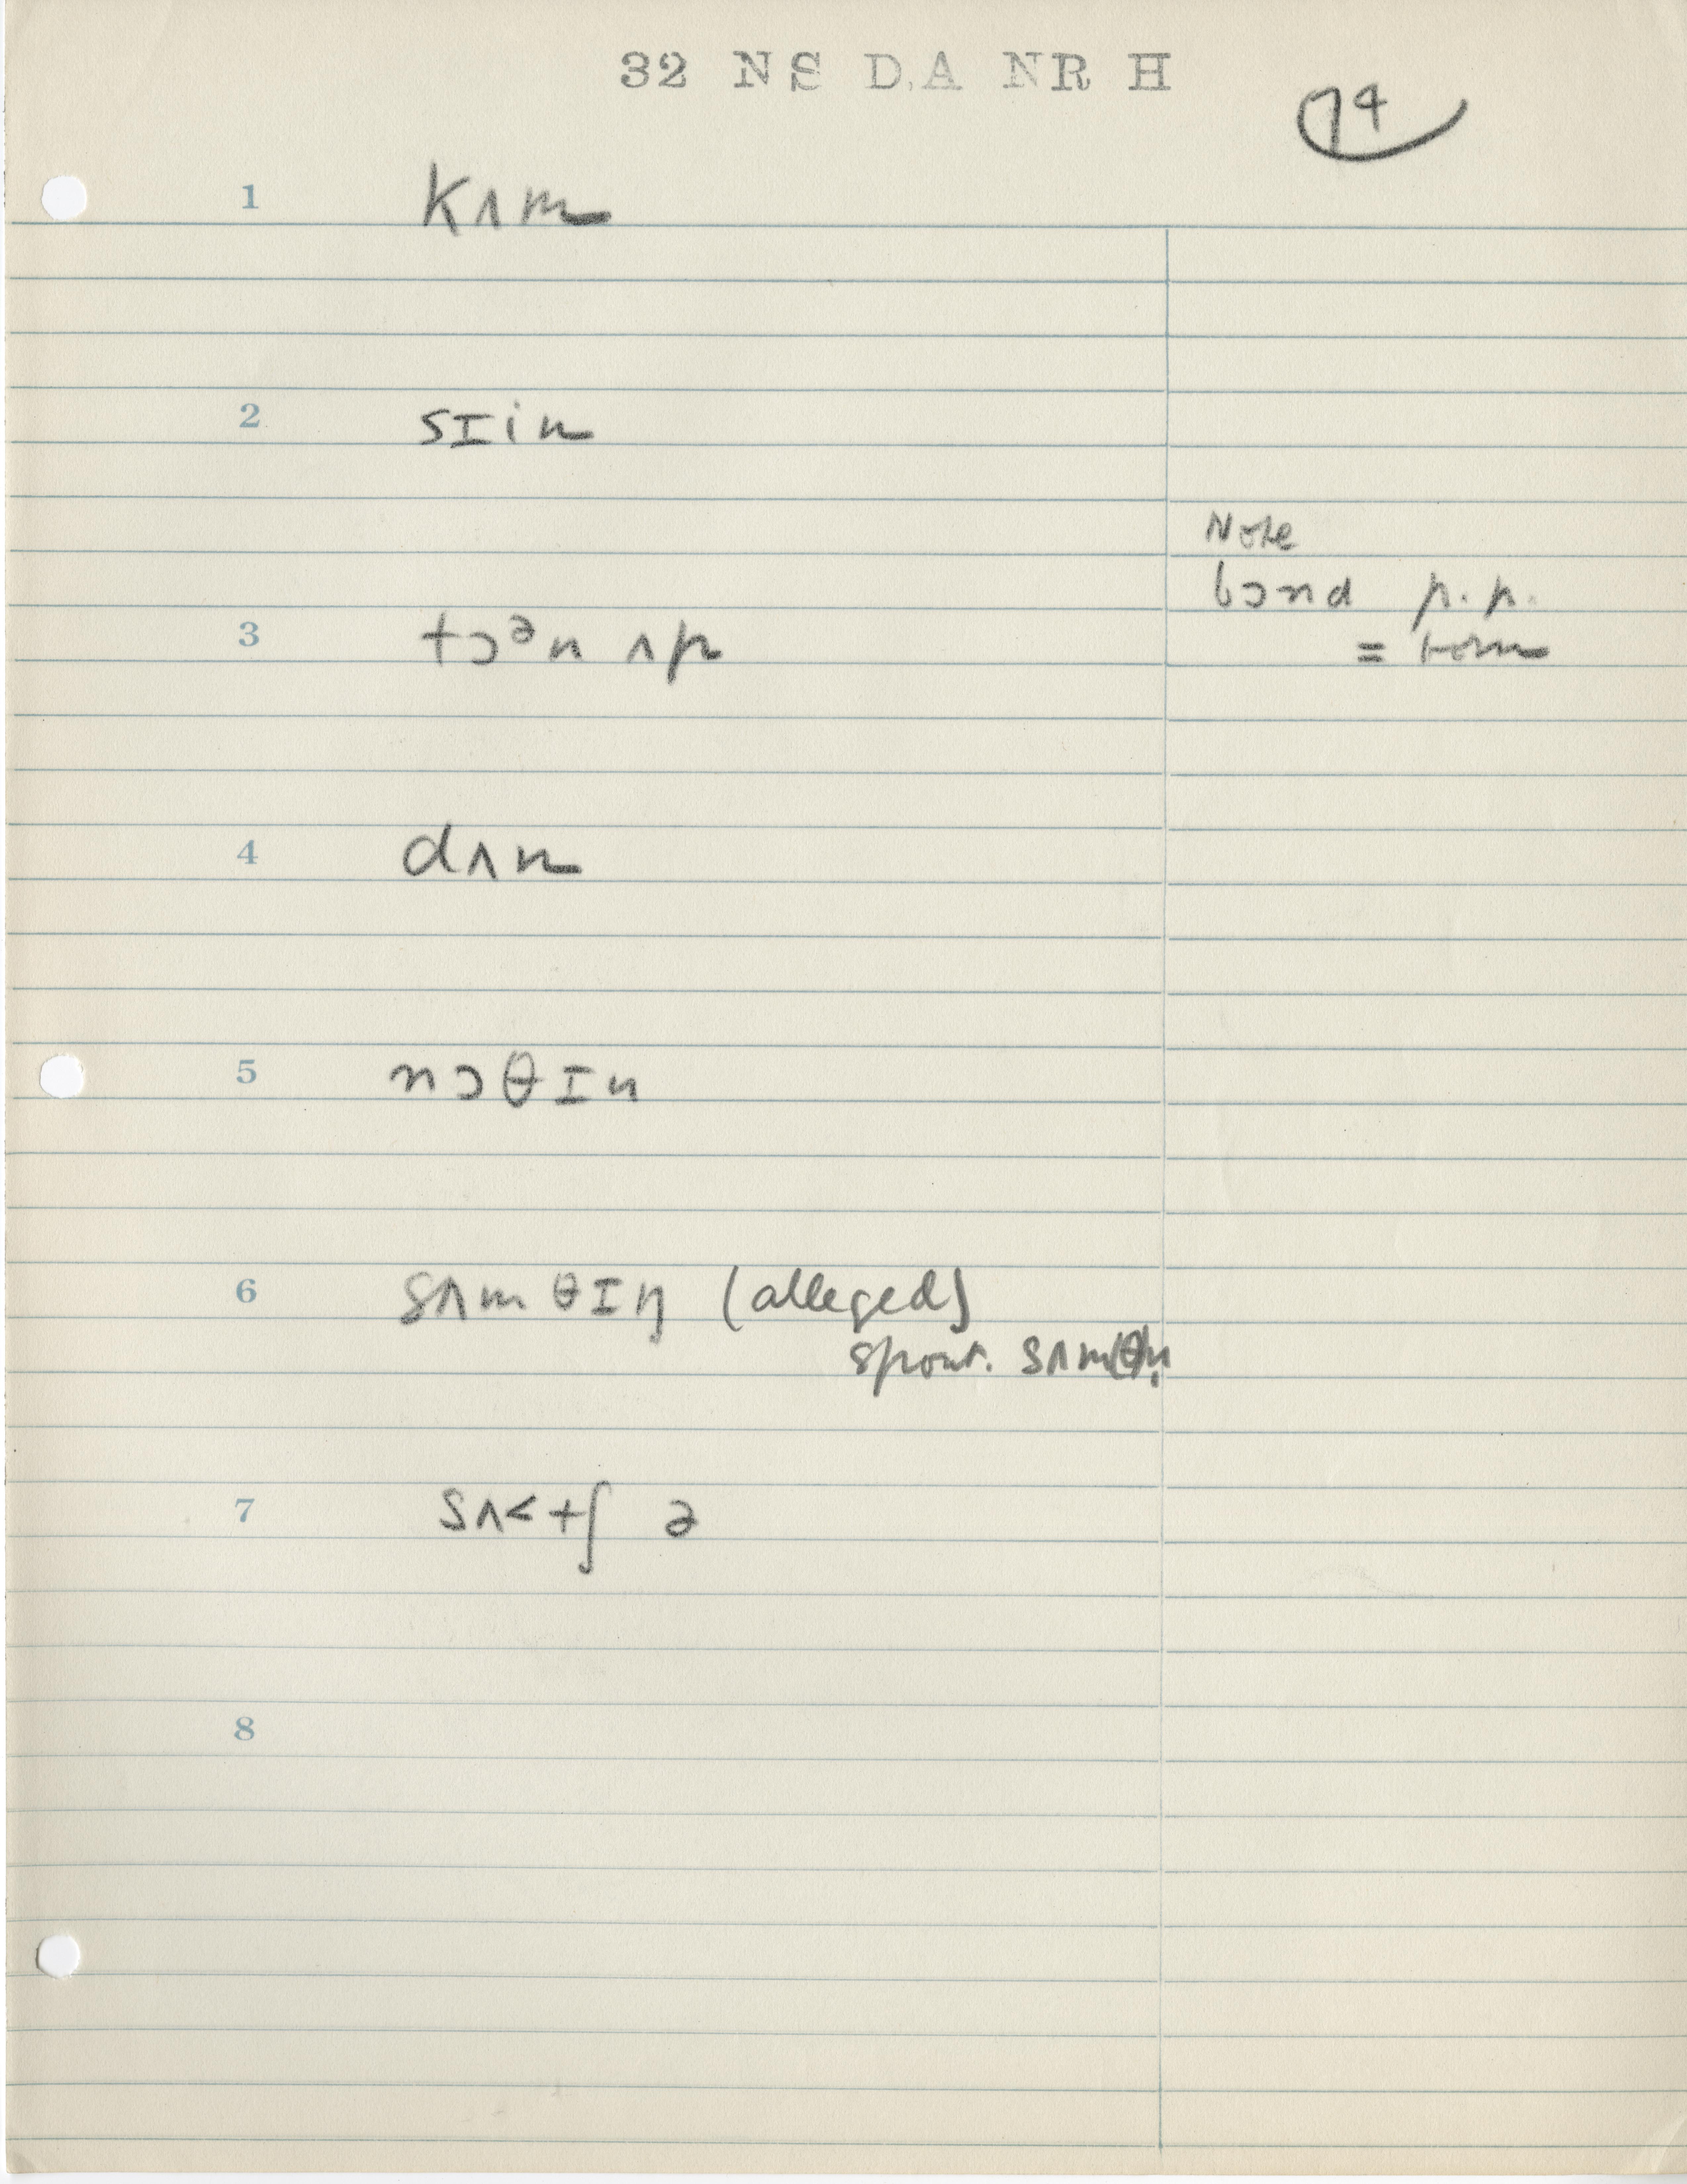 32 NS D.A NR H
74
1 kʌm
2 sɪin
Note
bɔnd p.p.
3 tɔᵊn ʌp
= torn
4 dʌn
5 nɔθɪn
6 sʌmθɪŋ (alleged)
spont. sʌm(θ)n̩
7 sʌ<tʃ ə
8